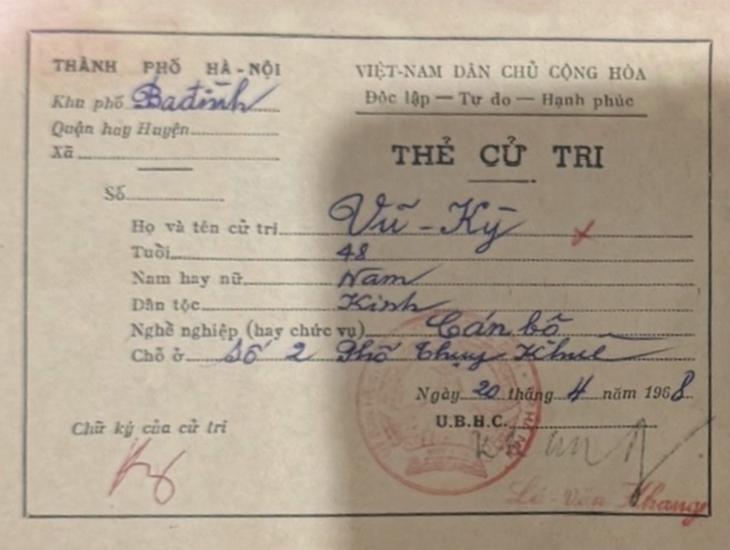 THÀNH PHỐ HÀ-NỘI
Khu phố Ba đình
Quận hay Huyện
Xã
VIỆT-NAM DÂN CHỦ CỘNG HÒA
Độc lập — Tự do — Hạnh phúc
THẺ CỬ TRI
Số
Họ và tên cử tri Vũ - Kỳ x
Tuổi 48
Nam hay nữ Nam
Dân tộc Kinh
Nghề nghiệp (hay chức vụ) Cán bộ
Chỗ ở Số 2 Phố Thụy Khuê
Ngày 20 tháng 4 năm 1968
U.B.H.C. Khang
Chữ ký của cử tri
Kỳ
Lê-Văn Khang